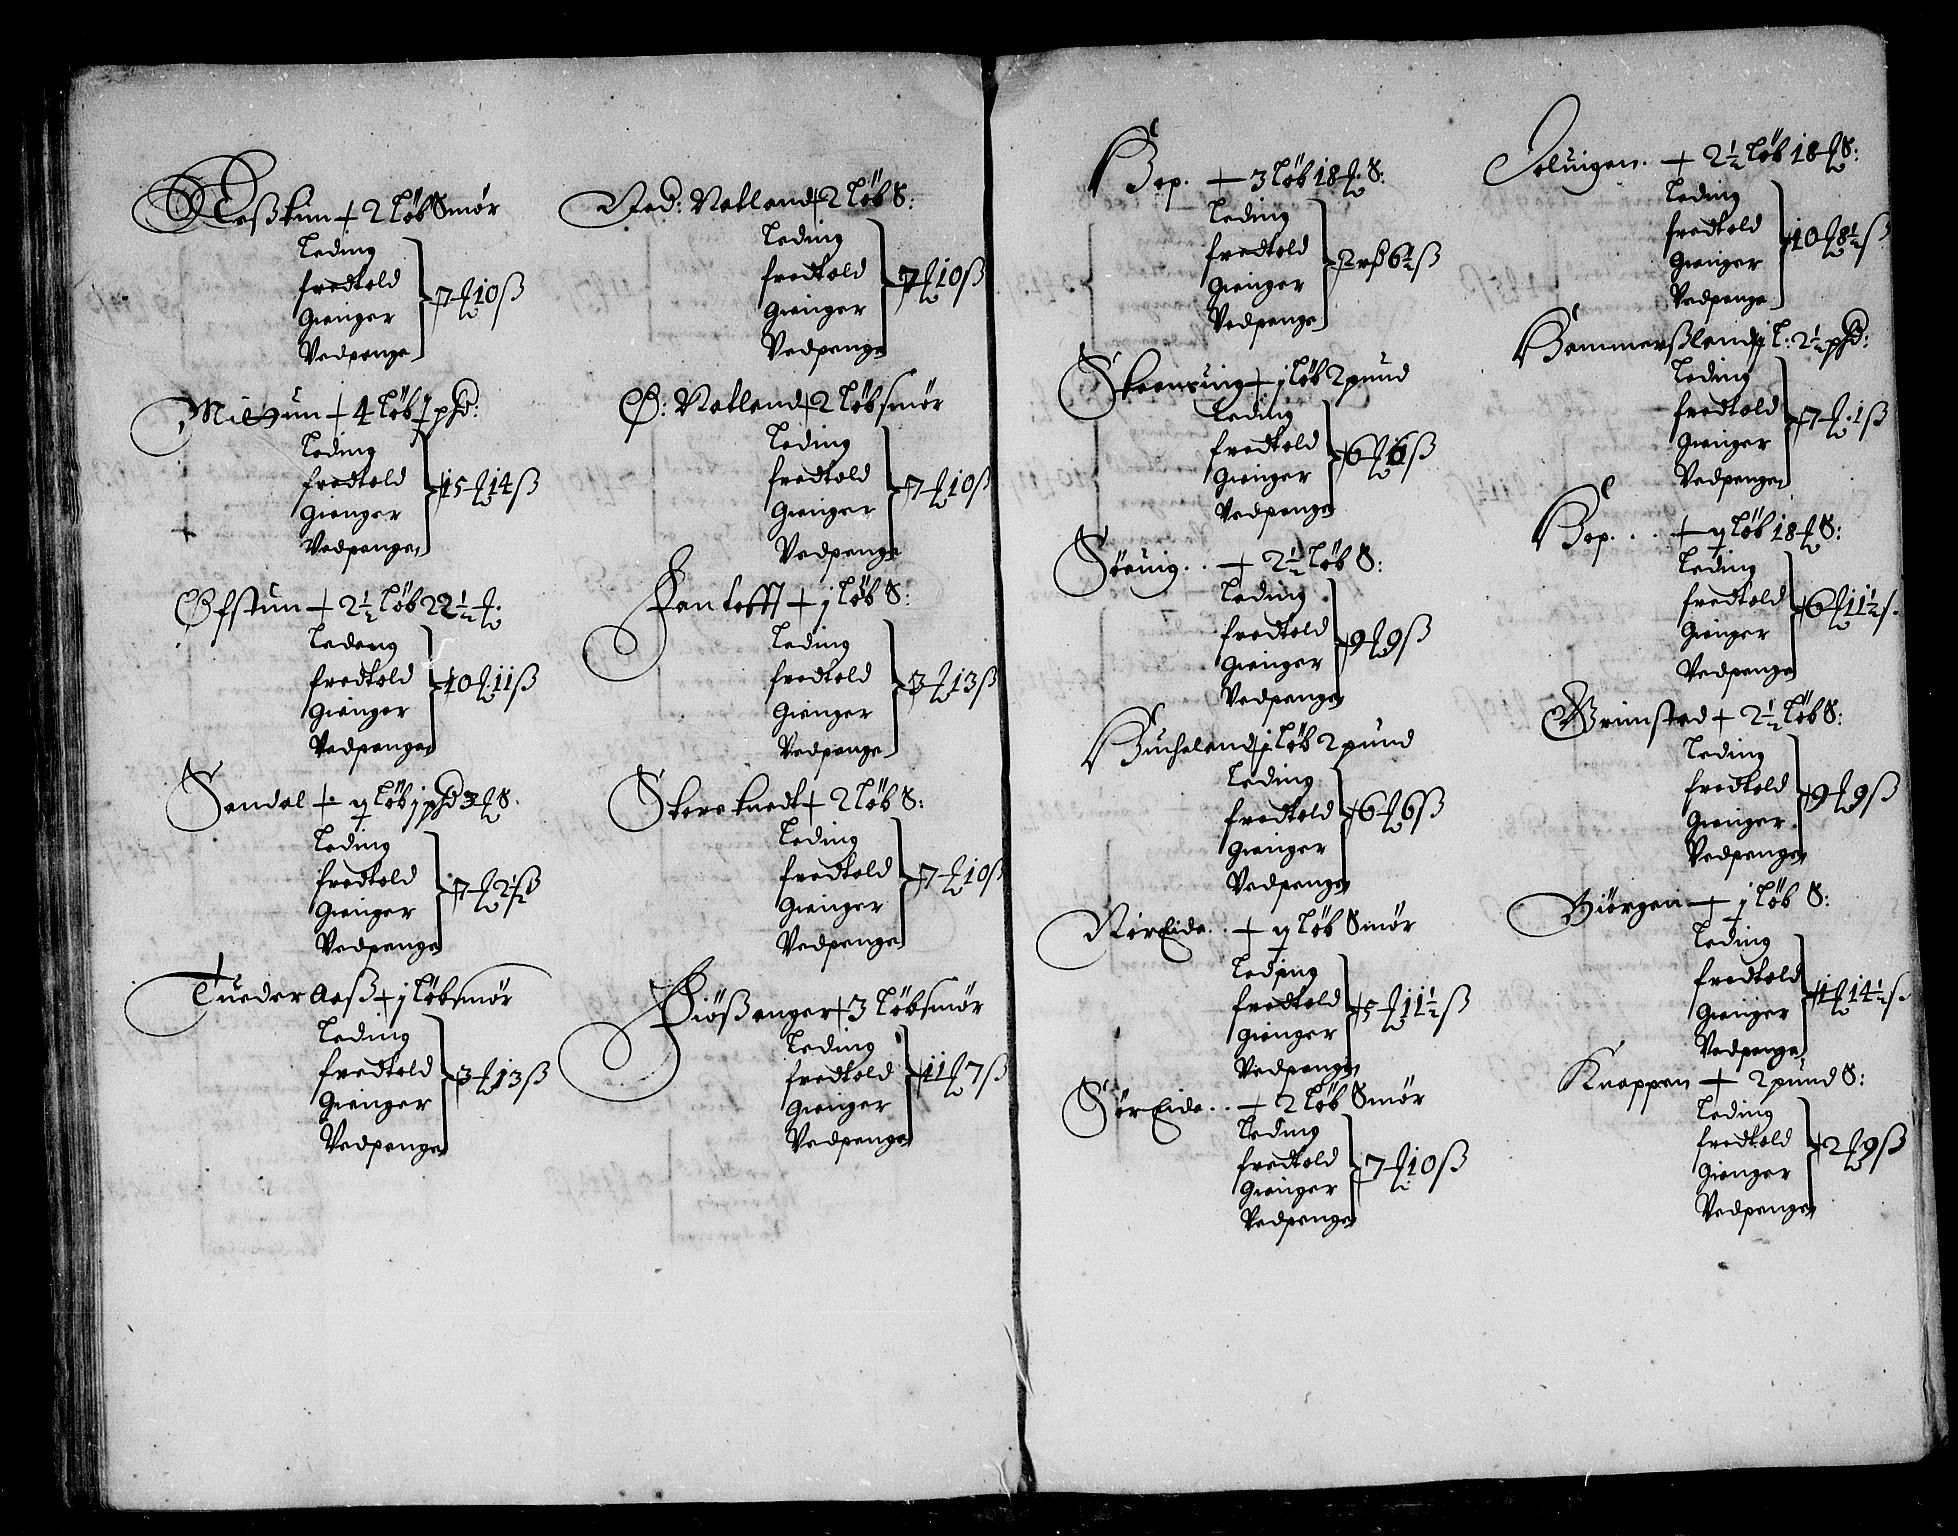 Tveßtun + 2 løb Smør
Leding
fredtold
Gienger
Vedpenge
7 ℔ 10 ß
Mildtun + 4 løb 1 phd:
Leding
fredtold
Gienger
Vedpenge
15 ℔ 14 ß
Øfstun + 2½ løb 22½ ℔.
Ledeng
fredtold
Gienger
Vedpenge
10 ℔ 11 ß
Sandal + 1 løb j phd 3 ℔ S.
Leding
fredtold
Gienger
Vedpenge
7 ℔ 2½ ß
Tueder Aaß + j løb smør
Leding
fredtold
Gienger
Vedpenge
3 ℔ 13 ß
Ned: Natland + 2 løb S:
Leding
fredtold
Gienger
Vedpenge
7 ℔ 10 ß
Ø: Natland + 2 løb smør
Leding
fredtold
Gienger
Vedpenge
7 ℔ 10 ß
Fantofft + j løb S:
Leding
fredtold
Gienger
Vedpenge
3 ℔ 13 ß
Skareknedt + 2 løb S:
Leding
fredtold
Gienger
Vedpenge
7 ℔ 10 ß
Fiößanger + 3 løb smør
Leding
fredtold
Gienger
Vedpenge
11 ℔ 7 ß
Bøp. + 3 løb 18 ℔ S:
Leding
fredtold
Gienger
Vedpenge
2 rß 6½ ß
Skeeuing + j løb 2 pund
Leding
fredtold
Gienger
Vedpenge
6 ℔ 6 ß
Söruig.. + 2½ løb S:
Leding
fredtold
Gienger
Vedpenge
9 ℔ 9 ß
Buchaland + j løb 2 pund
Leding
fredtold
Gienger
Vedpenge
6 ℔ 6 ß
Nør Eide.. + 1 løb Smør
Leding
fredtold
Gienger
Vedpenge
5 ℔ 11½ ß
Sør Eide.. + 2 løb Smør
Leding
fredtold
Gienger
Vedpenge
7 ℔ 10 ß
Soluigen. + 2½ løb 18 ℔ S:
Leding
fredtold
Gienger
Vedpenge
10 ℔ 8½ ß
Hammerßland + j l: 2½ phd:
Leding
fredtold
Gienger
Vedpenge
7 ℔ 1 ß
Bøp... + 1 løb 18 ℔ S:
Leding
fredtold
Gienger
Vedpenge
6 ℔ 11½ s.
Grimstad + 2½ løb S:
Leding
fredtold
Gienger
Vedpenge
9 ℔ 9 ß
Biörgen + j løb S:
Leding
fredtold
Gienger
Vedpenge
1 ℔ 14½ s.
Knappen + 2 pund S:
Leding
fredtold
Gienger
Vedpenge
2 ℔ 9 ß